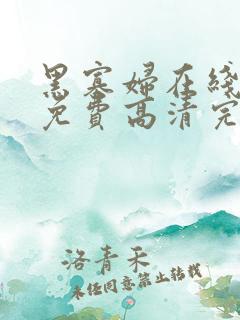 黑寡婦在綫
免費高清完
洛青禾
未经同意禁止转载